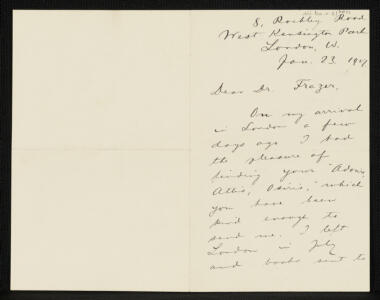 8, Rockley Road
West Kensington Park
London, W.
Jan. 23 1907
Dear Dr. Frazer,
On my arrival
in London a few
days ago I had
the pleasure of
finding your "Adonis,
Attis, Osiris," which
you have been
kind enough to
send me. I left
London in July
and books sent to